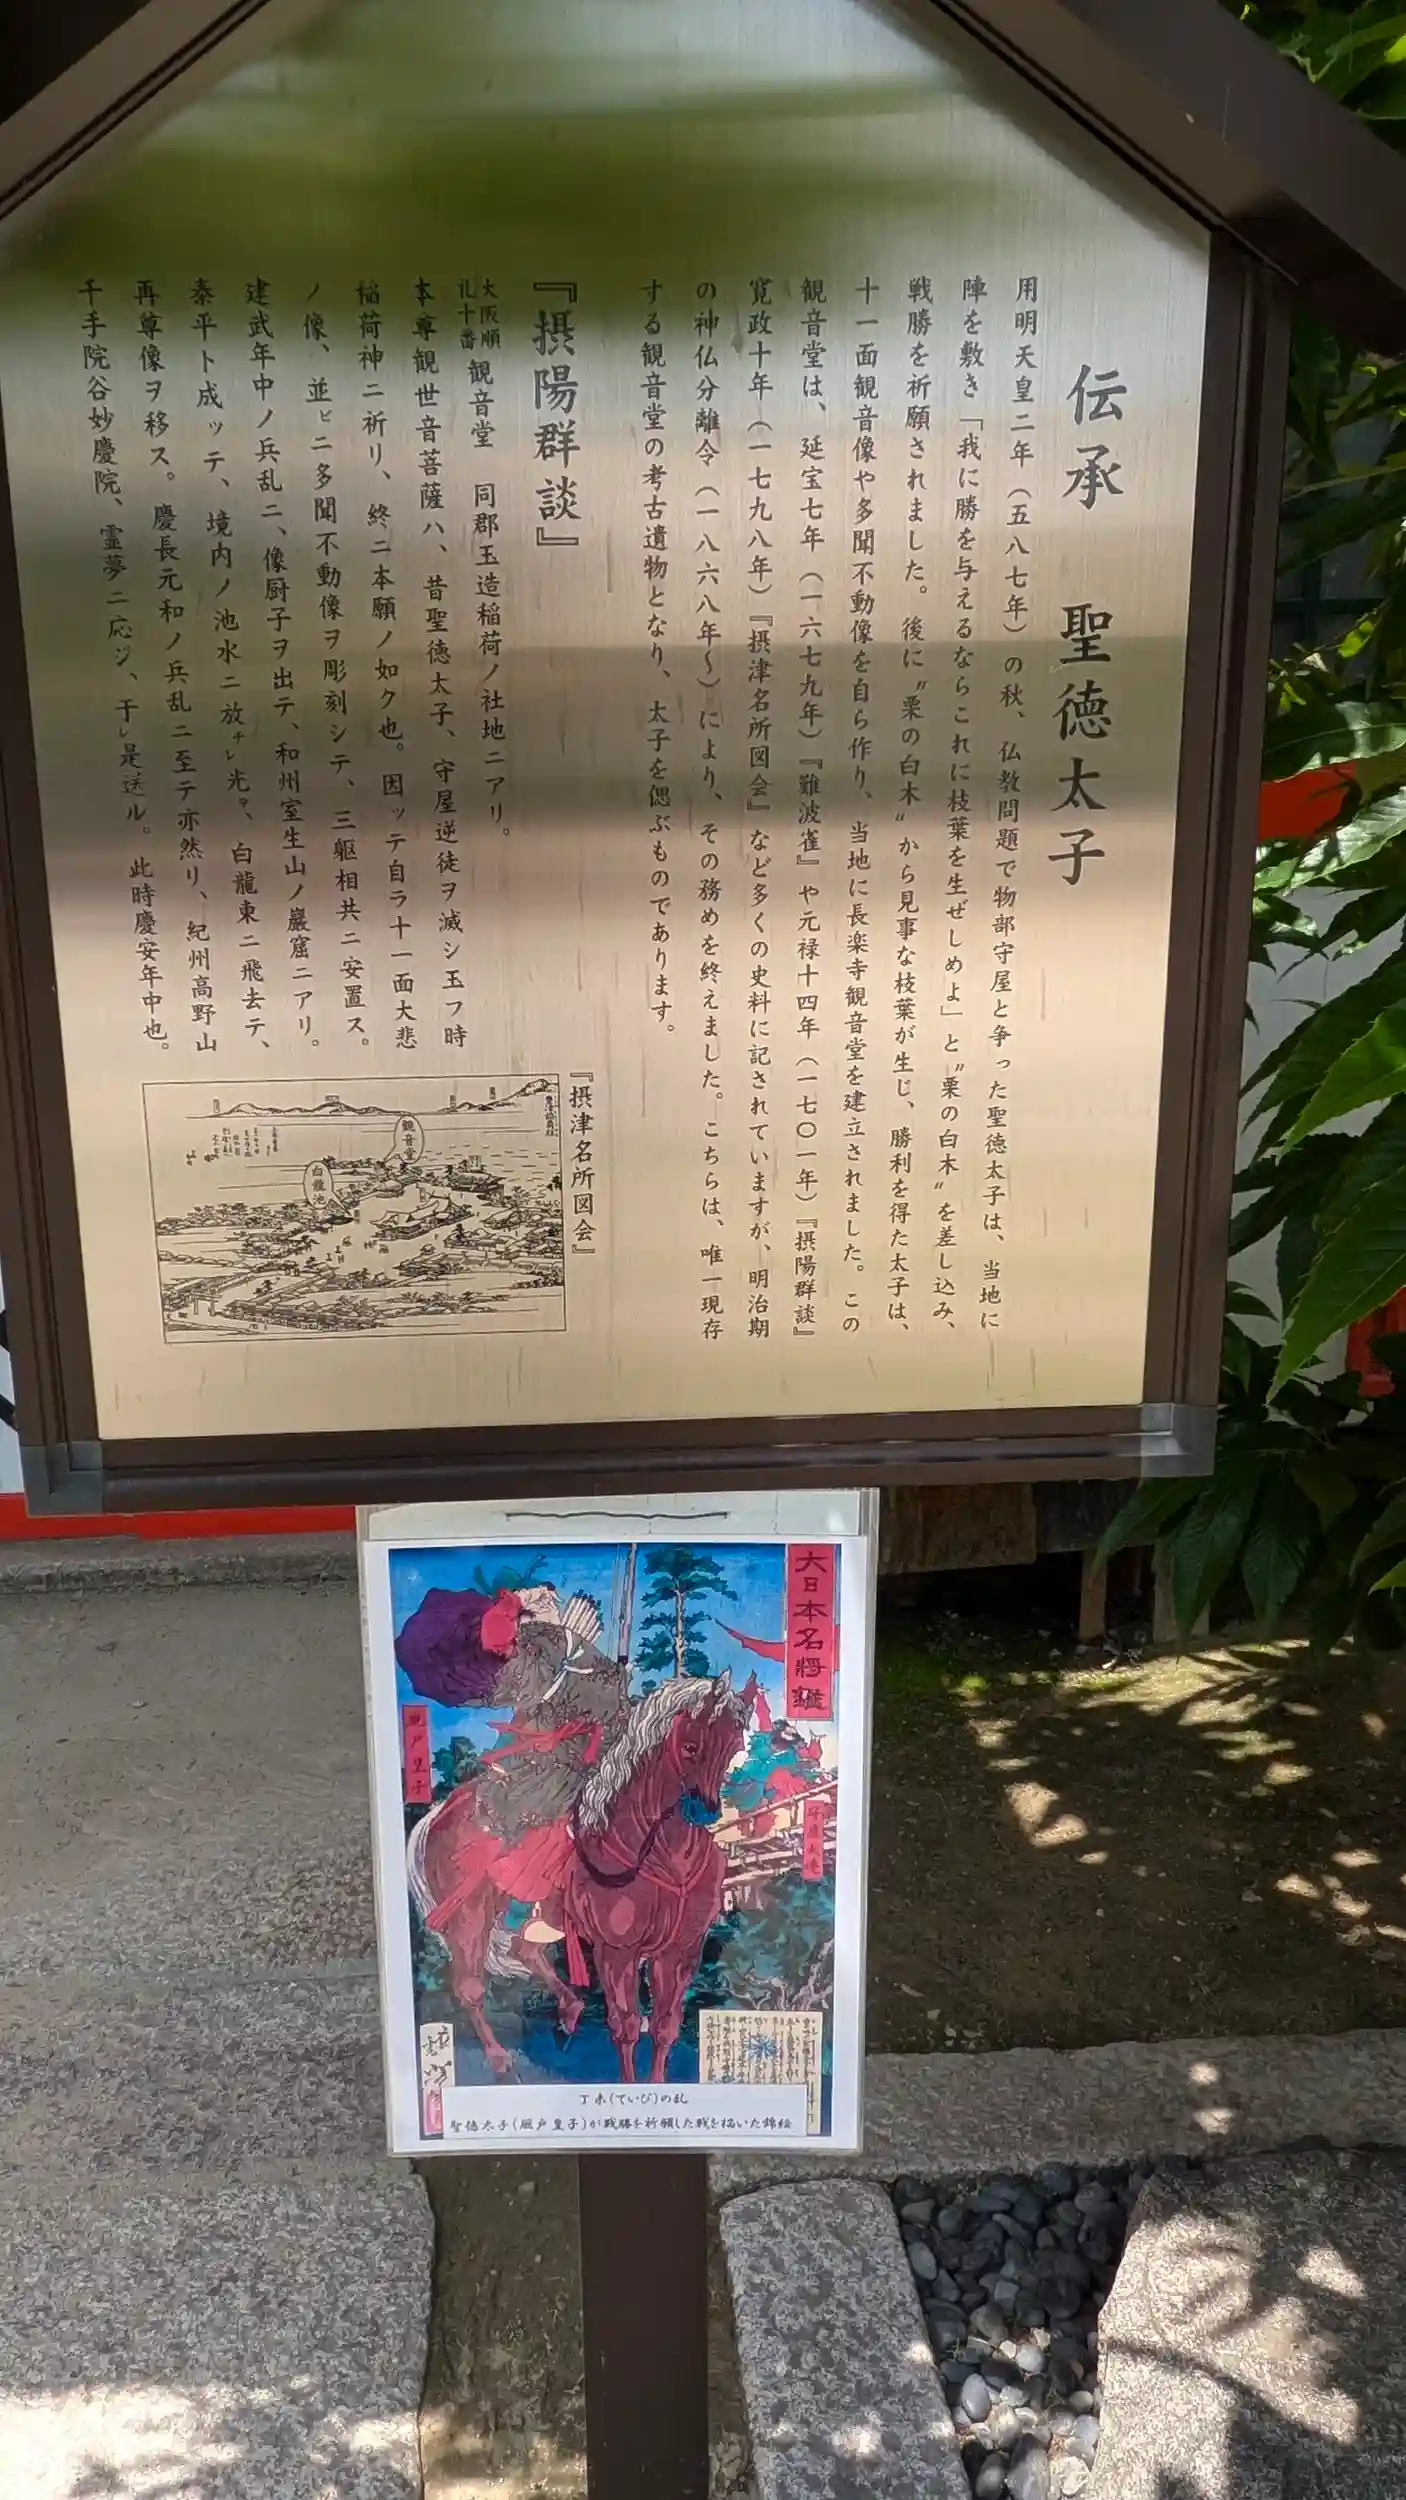 伝承 聖徳太子
用明天皇二年（五八七年）の秋、仏教問題で物部守屋と争った聖徳太子は、当地に
陣を敷き「我に勝を与えるならこれに枝葉を生ぜしめよ」と〝栗の白木〟を差し込み、
戦勝を祈願されました。後に〝栗の白木〟から見事な枝葉が生じ、勝利を得た太子は、
十一面観音像や多聞不動像を自ら作り、当地に長楽寺観音堂を建立されました。この
観音堂は、延宝七年（一六七九年）『難波雀』や元禄十四年（一七〇一年）『摂陽群談』
寛政十年（一七九八年）『摂津名所図会』など多くの史料に記されていますが、明治期
の神仏分離令（一八六八年〜）により、その務めを終えました。こちらは、唯一現存
する観音堂の考古遺物となり、太子を偲ぶものであります。
『摂陽群談』
大阪順
礼十番 観音堂 同郡玉造稲荷ノ社地ニアリ。
本尊観世音菩薩ハ、昔聖徳太子、守屋逆徒ヲ滅シ玉フ時
稲荷神ニ祈リ、終ニ本願ノ如ク也。因ッテ自ラ十一面大悲
ノ像、並ビニ多聞不動像ヲ彫刻シテ、三躯相共ニ安置ス。
建武年中ノ兵乱ニ、像厨子ヲ出テ、和州室生山ノ巖窟ニアリ。
泰平ト成ッテ、境内ノ池水ニ放チレ光ヲ、白龍東ニ飛去テ、
再尊像ヲ移ス。慶長元和ノ兵乱ニ至テ亦然リ、紀州高野山
千手院谷妙慶院、霊夢ニ応ジ、于レ是送ル。此時慶安年中也。
『摂津名所図会』
観音堂
白龍池
大日本名将鑑
厩戸皇子
丁未（ていび）の乱
聖徳太子（厩戸皇子）が戦勝を祈願した戦を描いた錦絵